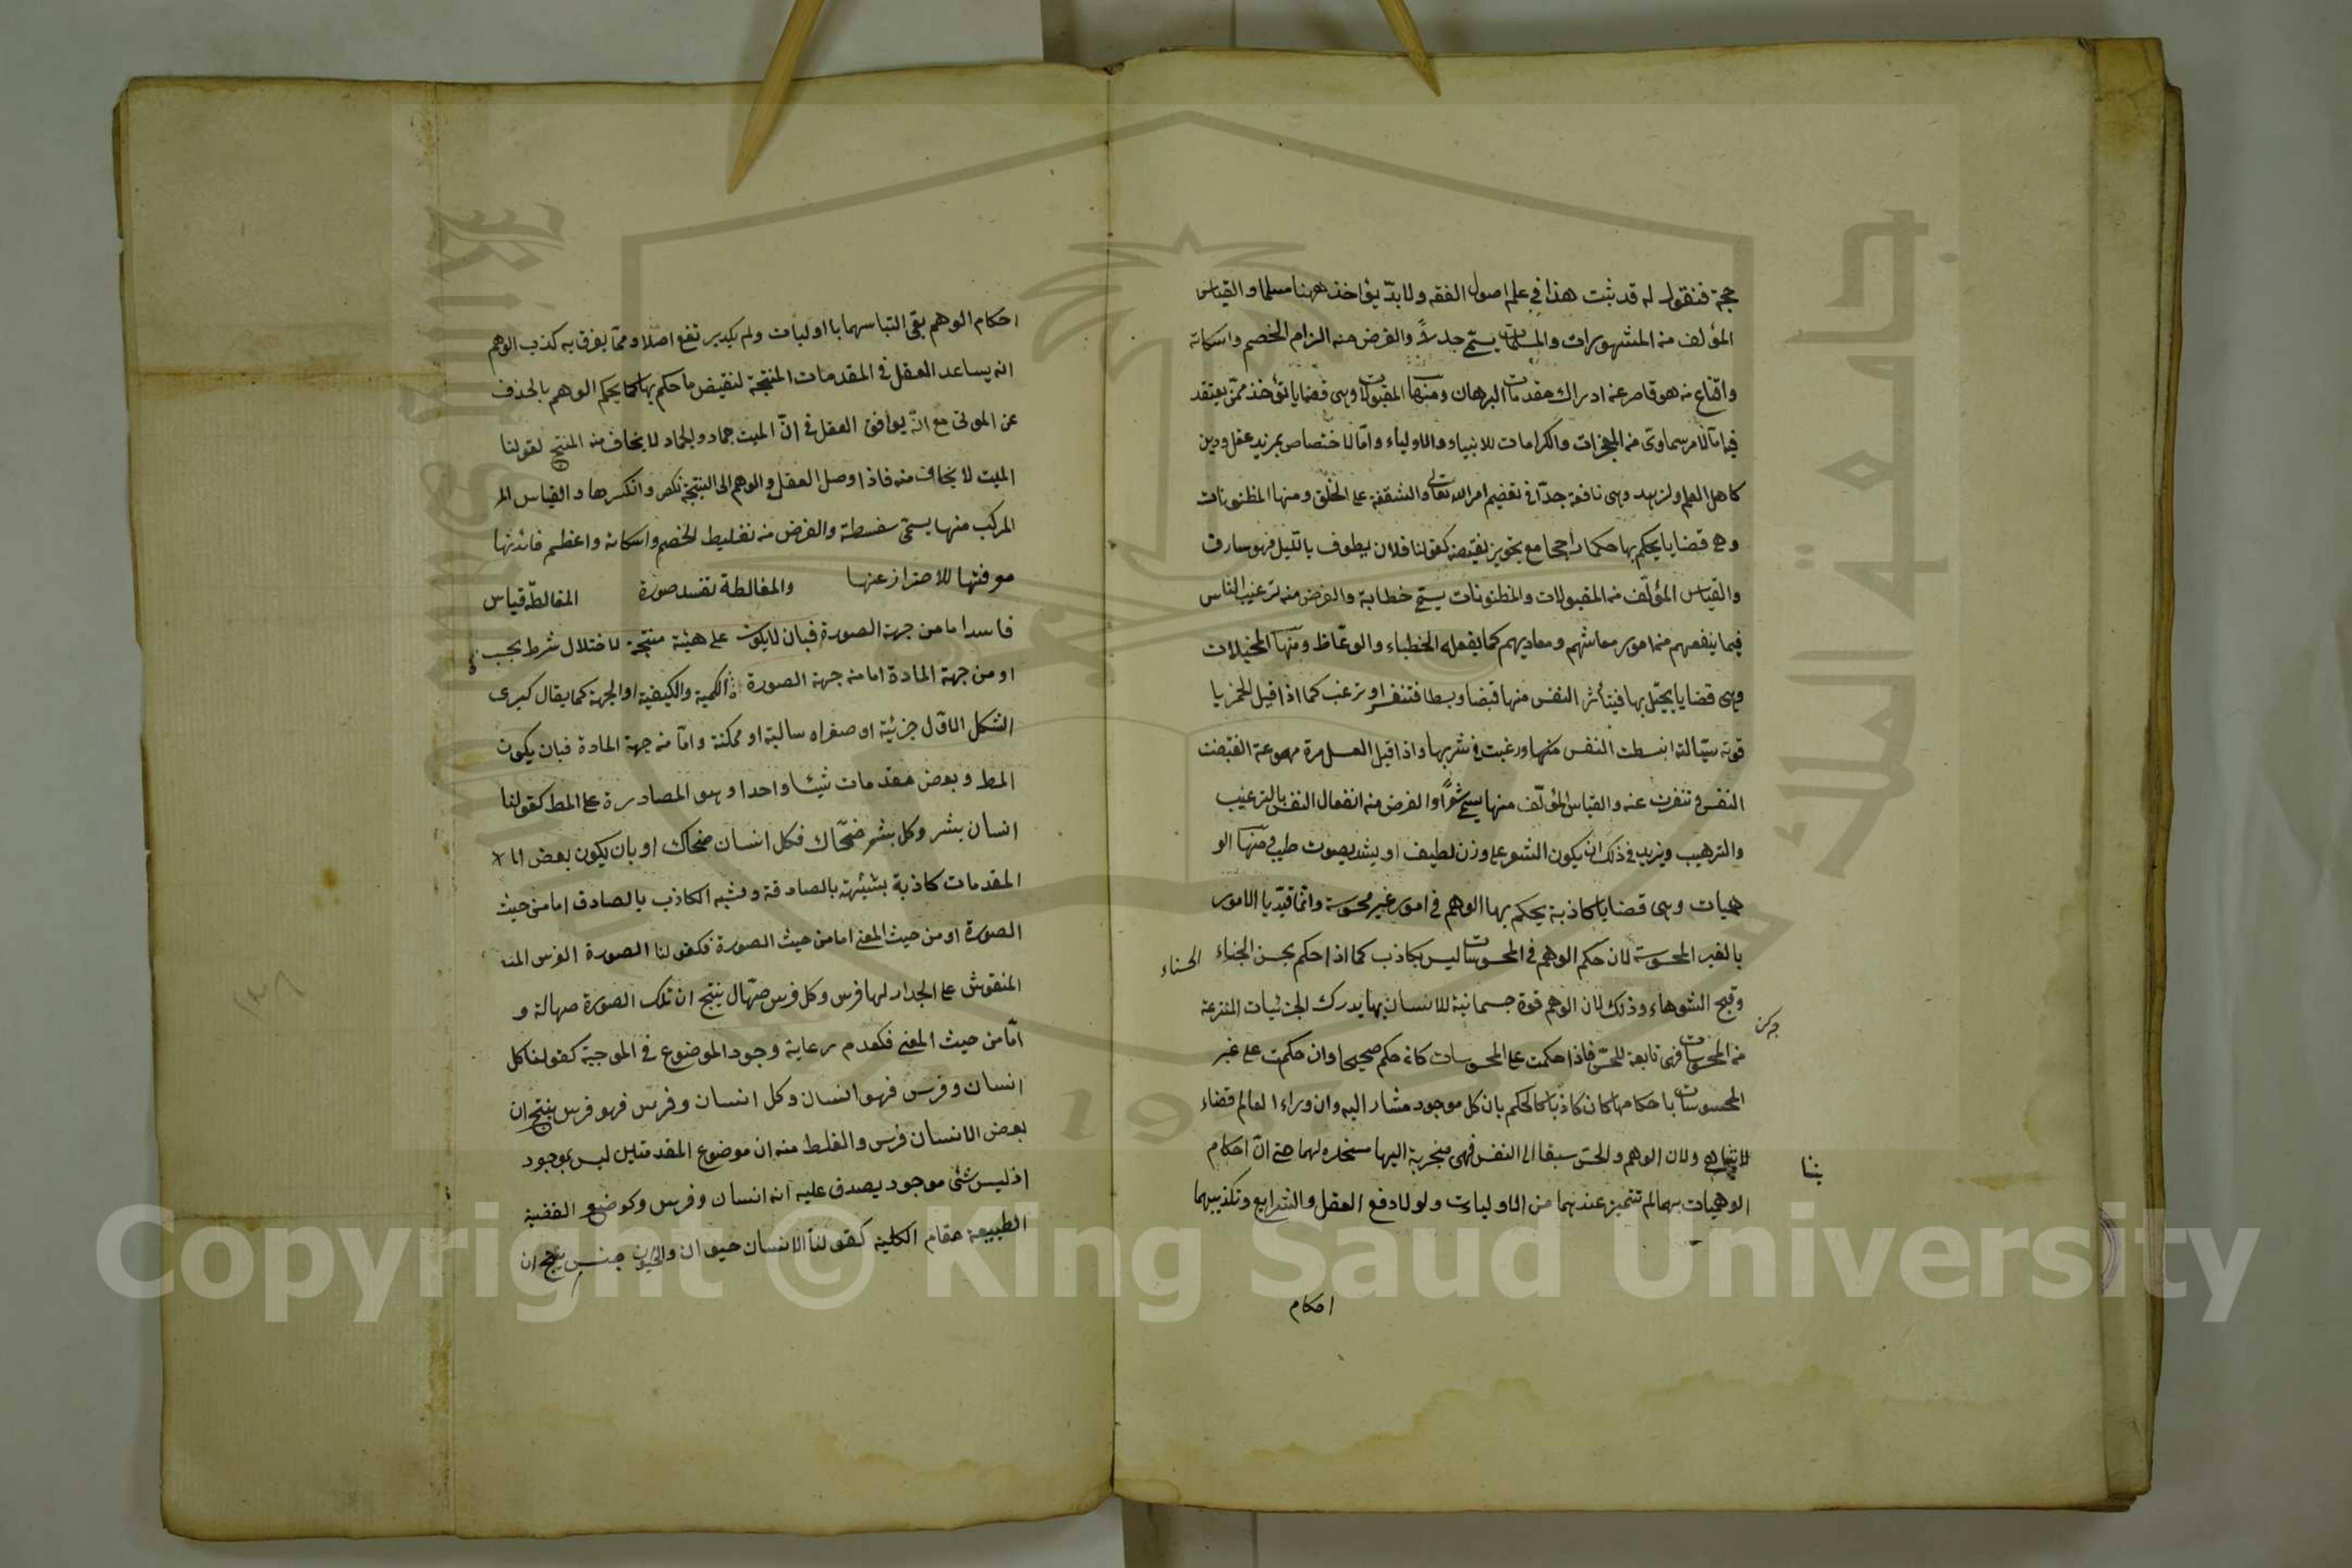 حجة فنقول له قد ثبت هذا في علم اصول الفقه ولا بدّ يؤاخذ ههنا مسلما والقياس
المؤلف من المشهورات والمسلمات يسمّى جدلاً والغرض منه الزام الخصم واسكاته
واقناع من هو قاصر عن ادراك مقدمات البرهان ومنها المقبولات وهى قضايا تؤخذ ممّن يعتقد
فيه امّا لامر سماوى من المعجزات والكرامات للانبياء والاولياء وامّا لاختصاص بمزيد عقل ودين
كاهل العلم والزهد وهى نافعة جدّا فى تعظيم امر الله تعالى والشفقة على الخلق ومنها المظنونات
وهى قضايا يحكم بها حكما راجحا مع تجويز نقيضه كقولنا فلان يطوف بالليل فهو سارق
والقياس المؤلّف من المقبولات والمظنونات يسمى خطابة والغرض منه ترغيب الناس
فيما ينفعهم من امور معاشهم ومعادهم كما يفعله الخطباء والوعّاظ ومنها المخيلات
وهى قضايا يخيّل بها فيتأثر النفس منها قبضا وبسطا فتنفر او ترغب كما اذا قيل الخمر يا
قوتة سيّالة انبسطت النفس منها ورغبت فى شربها واذا قيل العسل مرة مهوعة انقبضت
النفس وتنفرت عنه والقياس المؤلّف منها يسمى شعرًا والغرض منه انفعال النفس بالترغيب
والترهيب ويزيد فى ذلك ان يكون الشعر على وزن لطيف او ينشد بصوت طيب ومنها الو
هميات وهى قضايا كاذبة يحكم بها الوهم فى امور غير محسوسة وانّما قيّد يا الامور
بالغير المحسوسة لان حكم الوهم فى المحسوسات ليس بكاذب كما اذا حكم بحسن الجناء
الحسناء
وقبح الشوهاء وذلك لان الوهم قوة جسمانية للانسان بها يدرك الجزئيات المنتزعة
من المحسوسات فهى تابعة للحسّ فاذا حكمت على المحسوسات كان حكم صحيحا وان حكمت على غير
المحسوسات باحكامها كان كاذبا كالحكم بان كل موجود مشار اليه وان وراء العالم فضاء
لا يتناهى ولان الوهم والحسّ سبقا الى النفس فهى منجربة اليها مسخرة لهما حتى انّ احكام
الوهميات بهما لم تتميز عندهما من الاوليات ولولا دفع العقل والشرايع وتكذيبهما
احكام
احكام الوهم بقى التباسهما بااوليات ولم يكد يرتفع اصلا وممّا يفرق به كذب الوهم
انه يساعد العقل فى المقدمات المنتجة لنقيض ما حكم بها كما يحكم الوهم بالخوف
عن الموتى مع انّه يوافق العقل فى انّ الميت جماد والجماد لا يخاف منه المنتج لقولنا
الميت لا يخاف منه فاذا وصل العقل والوهم الى النتيجة نكص وانكرها والقياس المر
المركب منها يسمّى سفسطة والغرض منه تغليط الخصم واسكاته واعظم فائدتها
معرفتها للاحتراز عنها والمغالطة تفسد صورة المغالطة قياس
فاسد اما من جهة الصورة فبان لا يكون على هيئة منتجة لاختلال شرط بحسب
او من جهة المادة اما من جهة الصورة الكمية والكيفية او الجهة كما يقال كبرى
الشكل الاوّل جزئية او صغراه سالبة او ممكنة وامّا من جهة المادة فبان يكون
المط وبعض مقدمات شيئا واحدا وهو المصادرة على المط كقولنا
انسان بشر وكل بشر ضحّاك فكل انسان ضحاك او بان يكون بعض
المقدمات كاذبة بشبيهة بالصادقة وشبه الكاذب بالصادق اما من حيث
الصورة او من حيث المعنى اما من حيث الصورة فكقولنا الصورة الفرس المنـ
المنقوش على الجدار لهافرس وكل فرس صهّال ينتج ان تلك الصورة صهالة و
امّا من حيث المعنى فكعدم رعاية وجود الموضوع فى الموجبة كقولنا كل
انسان وفرس فهو انسان وكل انسان وفرس فهو فرس ينتج ان
بعض الانسان فرس والغلط منه ان موضوع المقدمتين ليس بموجود
اذ ليس شئ موجود يصدق عليه انه انسان وفرس وكوضع القضية
الطبيعة مقام الكلية كقولنا الانسان حيوان والحيوان جنس ينتج ان